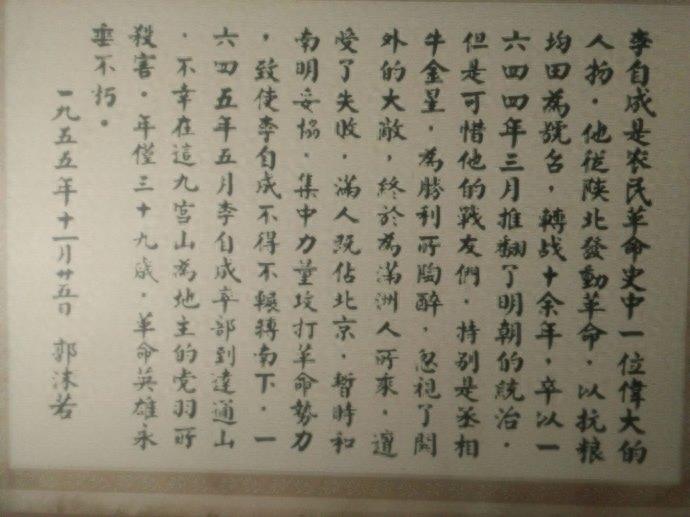 李自成是农民革命史中一位偉大的
人物．他從陝北發動革命．以抗粮
均田為號召，轉战十余年，卒以一
六四四年三月推翻了明朝的統治．
但是可惜他的戰友們．特别是丞相
牛金星．為勝利所陶醉．忽視了関
外的大敵，終於為滿洲人所乘．遭
受了失敗．滿人既佔北京．暫時和
南明妥協．集中力量攻打革命勢力
，致使李自成不得不輾轉南下．一
六四五年五月李自成率部到達通山
．不幸在這九宫山為地主的党羽所
殺害．年僅三十九歲．革命英雄永
垂不朽。
一九五五年十一月廿五日 郭沫若